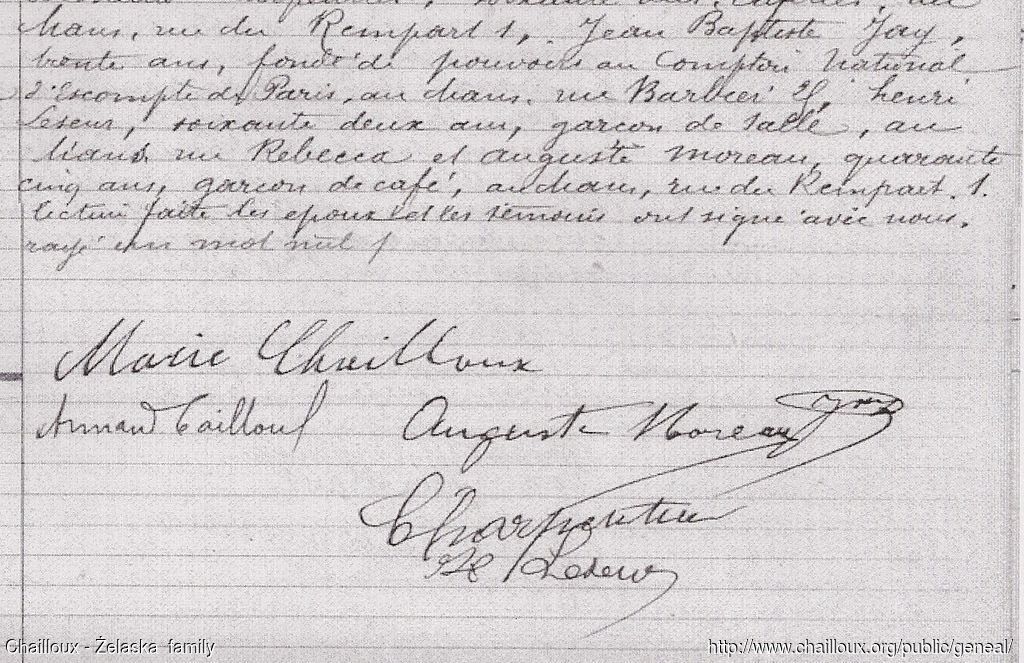 Mans, rue du Rempart 1, Jean Baptiste Jay,
trente ans, fondé de pouvoirs au Comptoir National
d'Escompte de Paris, au Mans, rue Barbier, henri
Leseur, soixante deux ans, garçon de salle, au
Mans rue Rebecca et auguste Moreau, quarante
cinq ans, garçon de café, au Mans, rue du Rempart. 1.
lecture faite les epoux et les témoins ont signé avec nous.
rayé un mot nul /
Marie Chailloux
Armand Tailloul Auguste Moreau
Charpentier
H Leseur
Chailloux - Żelaska family
http://www.chailloux.org/public/geneal/